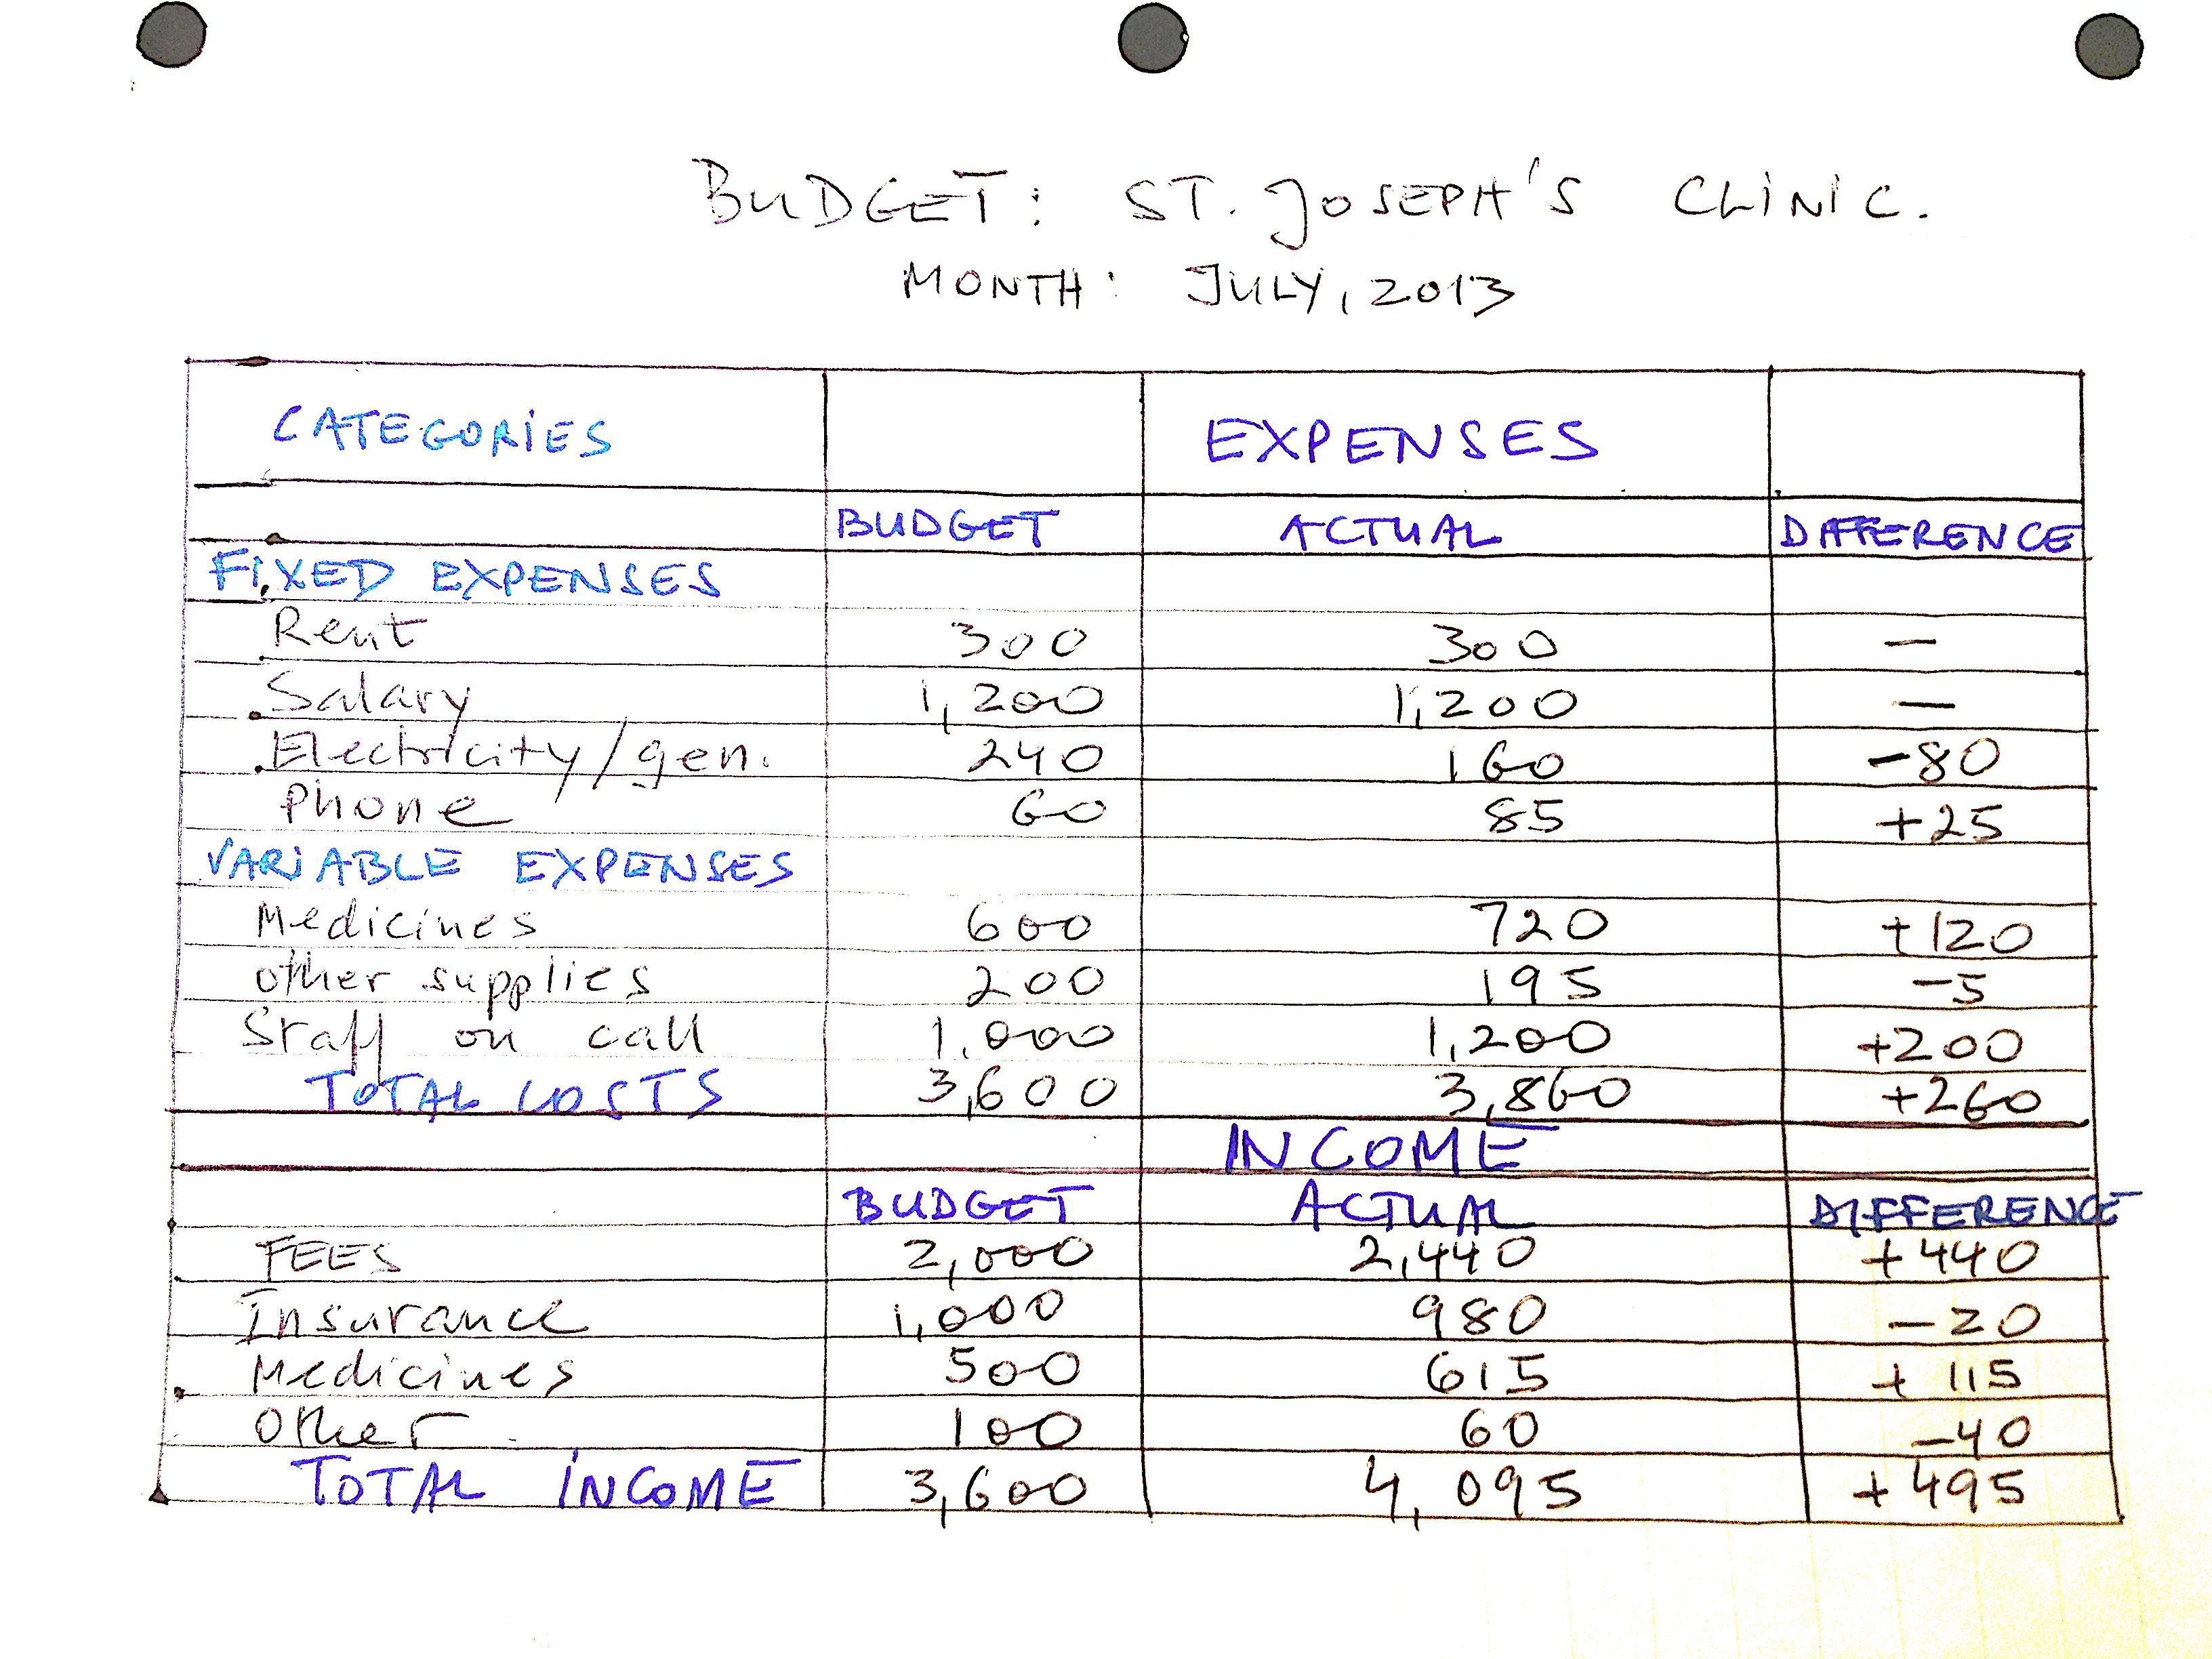 BUDGET: ST. JOSEPH'S CLINIC.
MONTH: JULY, 2013
CATEGORIES EXPENSES
BUDGET ACTUAL DIFFERENCE
FIXED EXPENSES
Rent 300 300 —
Salary 1,200 1,200 —
Electricity/gen. 240 160 -80
Phone 60 85 +25
VARIABLE EXPENSES
Medicines 600 720 +120
other supplies 200 195 -5
Staff on call 1.000 1,200 +200
TOTAL COSTS 3,600 3,860 +260
INCOME
BUDGET ACTUAL DIFFERENCE
FEES 2,000 2,440 +440
Insurance 1,000 980 -20
Medicines 500 615 +115
Other 100 60 -40
TOTAL INCOME 3,600 4,095 +495